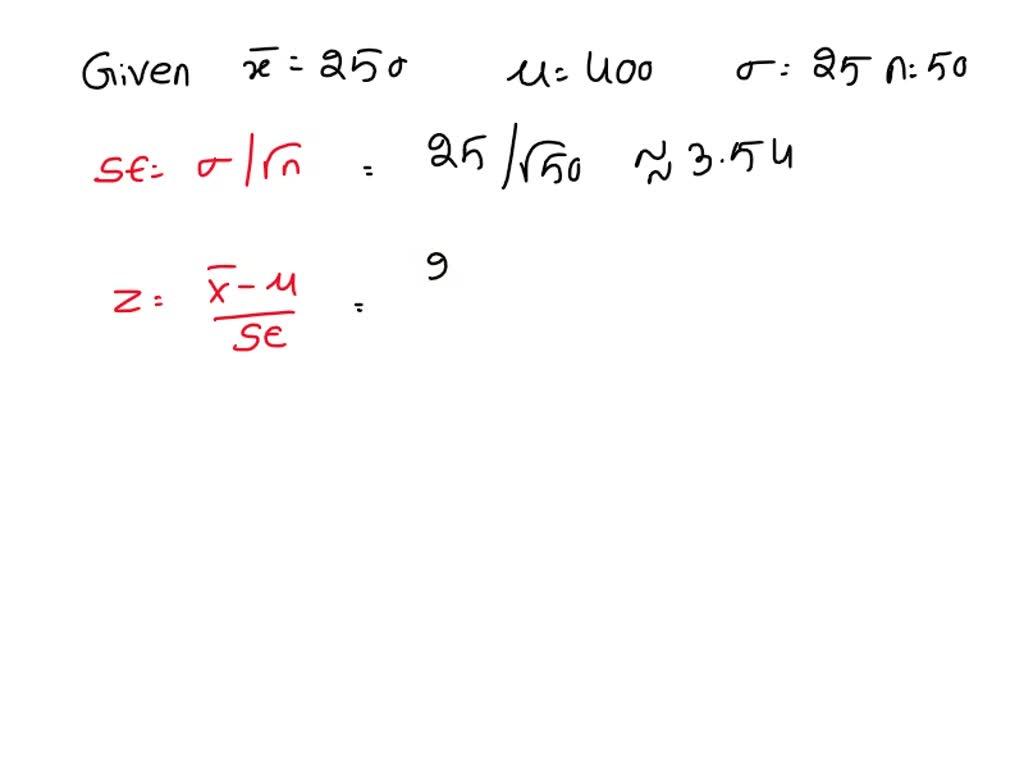 Given x̄ = 250 μ = 400 σ = 25 n = 50
SE = σ/√n = 25/√50 ≈ 3.54
z = (x̄ - μ)/SE = 2